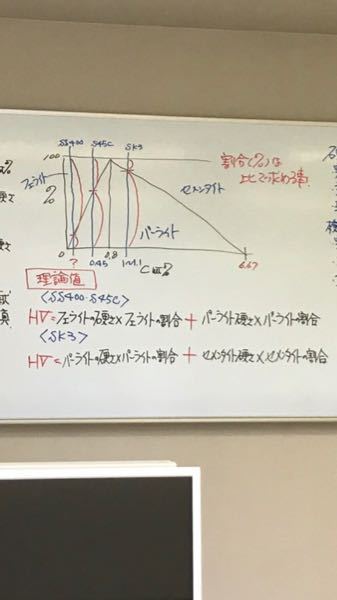 SS400 S45C SK3
100
フェライト
%
割合(%)は
比で求める事!
セメンタイト
パーライト
0 ? 0.45 0.8 1~1.1 6.67
C
理論値
〈SS400・S45C〉
HV=フェライトの硬さ×フェライトの割合+パーライト硬さ×パーライトの割合
〈SK3〉
HV=パーライトの硬さ×パーライトの割合+セメンタイト硬さ×セメンタイトの割合